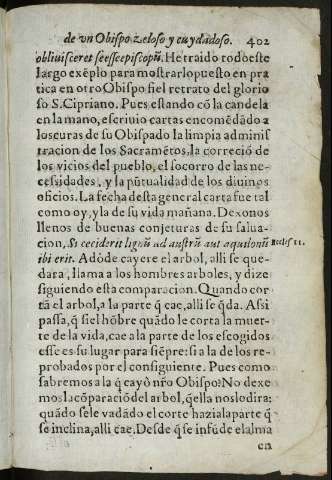 de vn Obispo zeloso y cuydadoso. 402
obliuisceret se esse episcopũ. He traido todo este
largo exẽplo para mostrar lo puesto en pra
tica en otro Obispo fiel retrato del glorio
so S. Cipriano. Pues estando cõ la candela
en la mano, escriuio cartas encomẽdãdo a
los curas de su Obispado la limpia adminis
tracion de los Sacramẽtos, la correciõ de
los vicios del pueblo, el socorro de las ne-
cessidades, y la pũtualidad de los diuinos
oficios. La fecha desta general carta fue tal
como oy, y la de su vida mañana. Dexonos
llenos de buenas conjeturas de su salua-
cion, Si ceciderit lignũ ad austrũ aut aquilonũ
Eccles. 11.
ibi erit. Adõde cayere el arbol, alli se que-
dara, llama a los hombres arboles, y dize
siguiendo esta comparacion. Quando cor-
tã el arbol, a la parte q̃ cae, alli se q̃da. Assi
passa, q̃ si el hõbre quãdo le corta la muer-
te de la vida, cae a la parte de los escogidos
esse es su lugar para siẽpre: si a la de los re-
probados por el consiguiente. Pues como
sabremos a la q̃ cayò nr̃o Obispo? No dexe
mos la cõparaciõ del arbol, q̃ ella nos lo dira:
quãdo se le va dãdo el corte hazia la parte q̃
se inclina, alli cae. Desde q̃ se infũde el alma
en